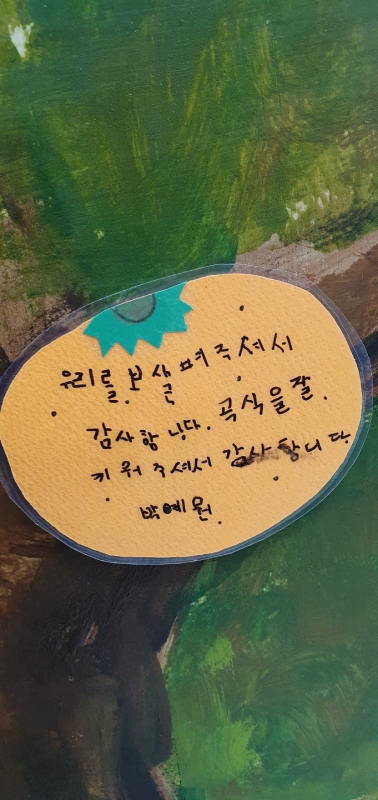 우리를 보살펴주셔서
감사합니다. 곡식을 잘
키워 주셔서 감사합니다
박예원